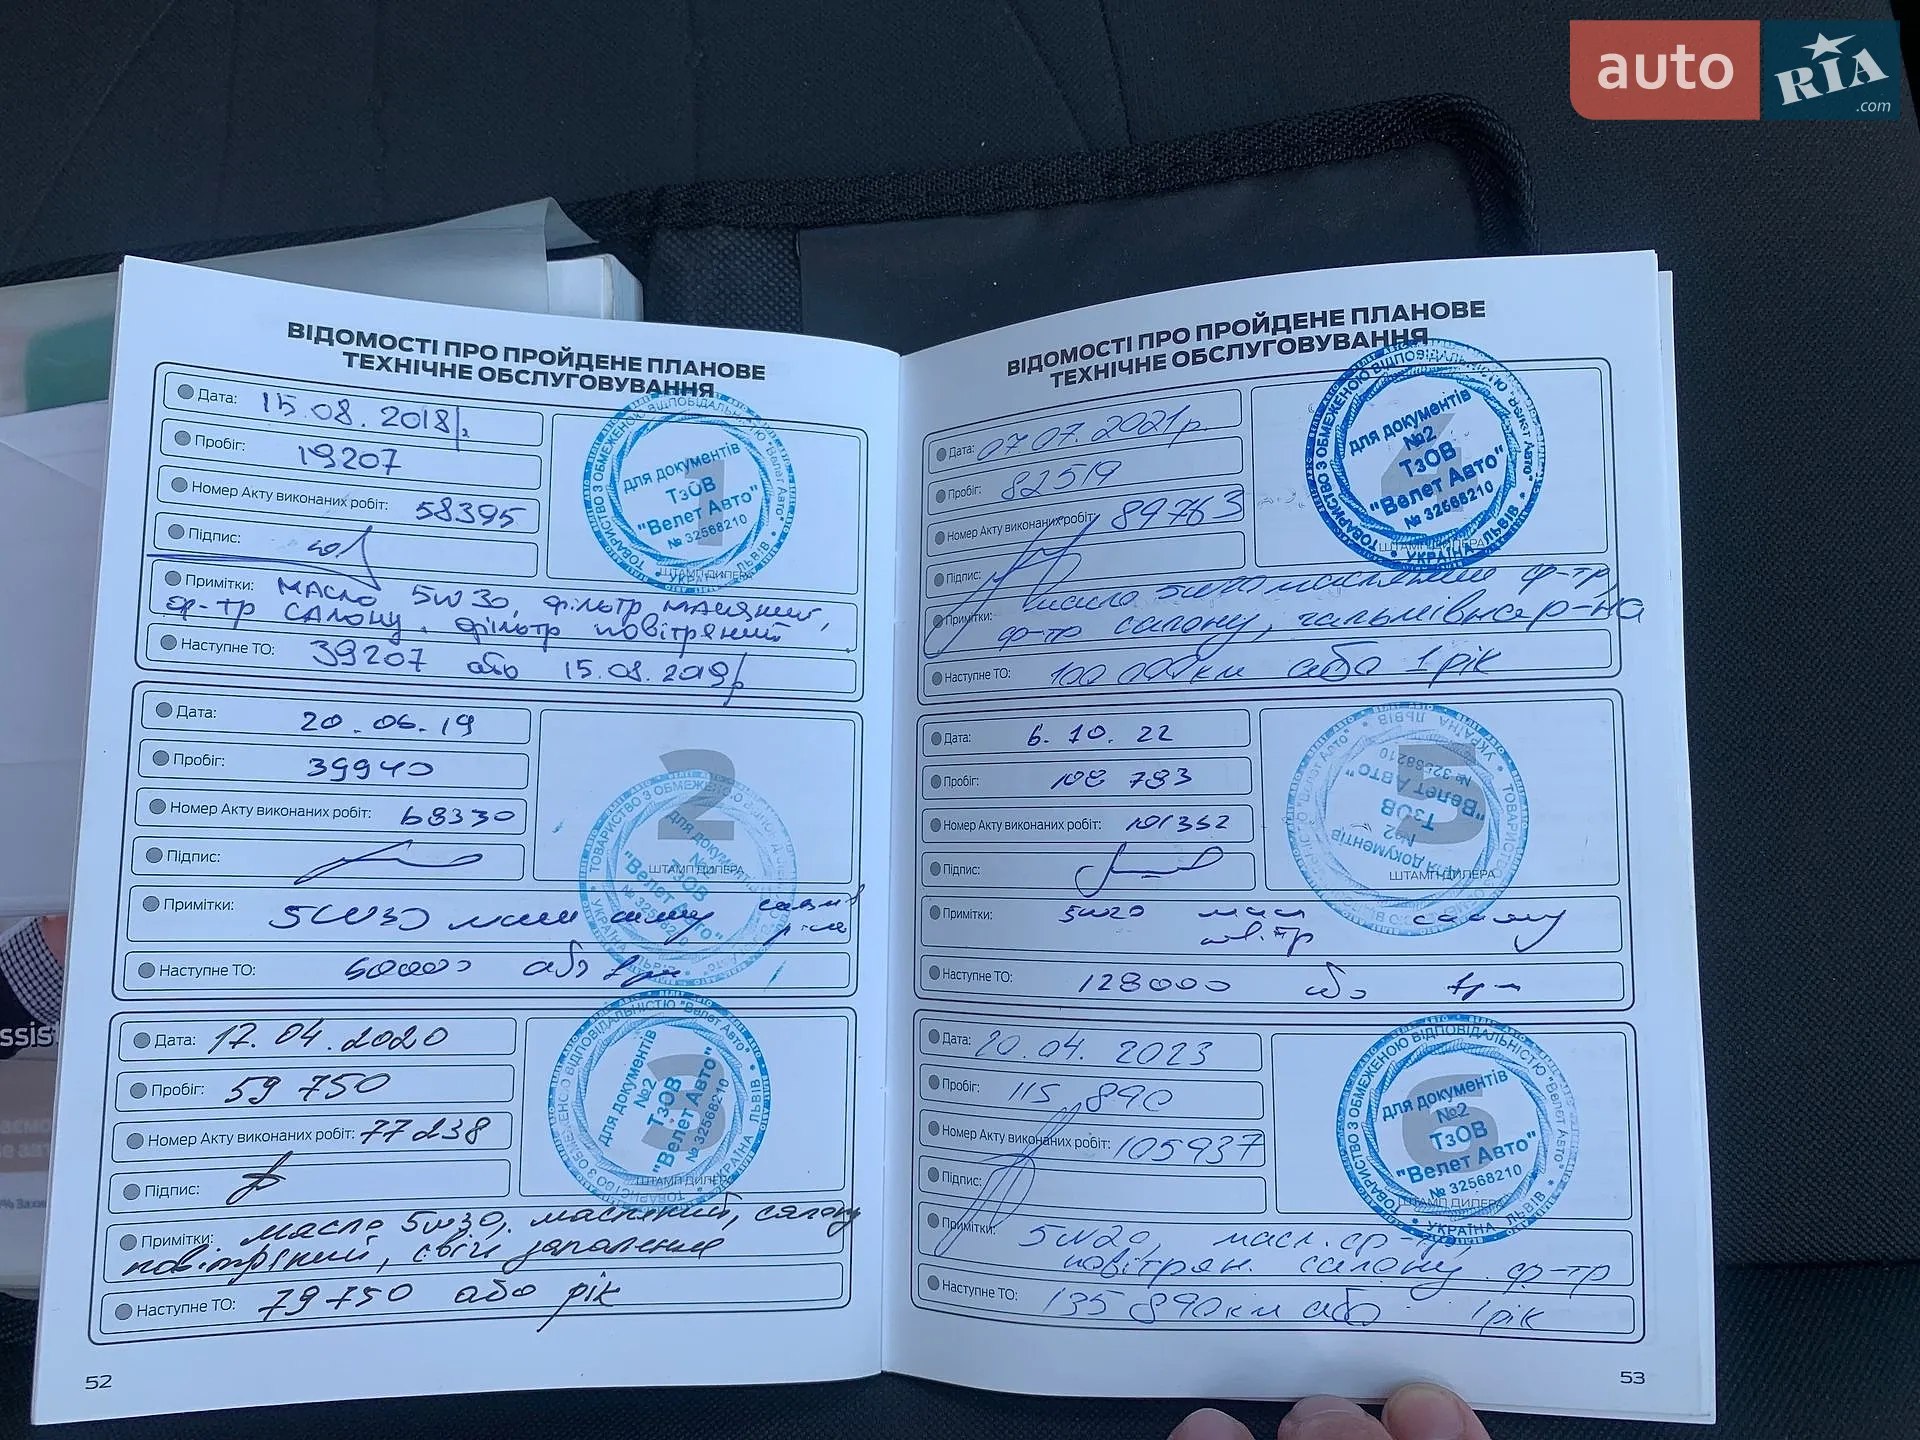 auto RIA.com
ВІДОМОСТІ ПРО ПРОЙДЕНЕ ПЛАНОВЕ
ТЕХНІЧНЕ ОБСЛУГОВУВАННЯ
Дата: 15.08.2018р.
Пробіг: 19207
Номер Акту виконаних робіт: 58395
Підпис:
Примітки: МАСЛО 5W30, фільтр масляний,
ф-тр САЛОНУ, фільтр повітряний
Наступне ТО: 39207 або 15.08.2019р
1
для документів
ТзОВ
"Велет Авто"
№ 32568210
ШТАМП ДИЛЕРА
Дата: 20.06.19
Пробіг: 39940
Номер Акту виконаних робіт: 68330
Підпис:
Примітки: 5W30
Наступне ТО: 60000 або 1 рік
2
для документів
ТзОВ
"Велет Авто"
№ 32568210
ШТАМП ДИЛЕРА
Дата: 17.04.2020
Пробіг: 59 750
Номер Акту виконаних робіт: 77238
Підпис:
Примітки: масло 5w30, масляний, салону
повітряний, свічі запалення
Наступне ТО: 79750 або рік
3
для документів
№2
ТзОВ
"Велет Авто"
№ 32568210
ШТАМП ДИЛЕРА
52
ВІДОМОСТІ ПРО ПРОЙДЕНЕ ПЛАНОВЕ
ТЕХНІЧНЕ ОБСЛУГОВУВАННЯ
Дата: 07.07.2021р.
Пробіг: 82519
Номер Акту виконаних робіт: 89763
Підпис:
Примітки: масло 5w20 масляний ф-тр,
ф-тр салону,
Наступне ТО: 100 000км або 1 рік
4
для документів
№2
ТзОВ
"Велет Авто"
№ 32568210
ШТАМП ДИЛЕРА
Дата: 6.10.22
Пробіг: 108 783
Номер Акту виконаних робіт: 101352
Підпис:
Примітки: 5w20 мал салону
Наступне ТО: 128000 або 1 рік
5
для документів
№2
ТзОВ
"Велет Авто"
№ 32568210
ШТАМП ДИЛЕРА
Дата: 20.04.2023
Пробіг: 115 890
Номер Акту виконаних робіт: 105937
Підпис:
Примітки: 5w20, масл. ф-тр,
повітрян. салону ф-тр
Наступне ТО: 135 890км або 1 рік
6
для документів
№2
ТзОВ
"Велет Авто"
№ 32568210
ШТАМП ДИЛЕРА
53